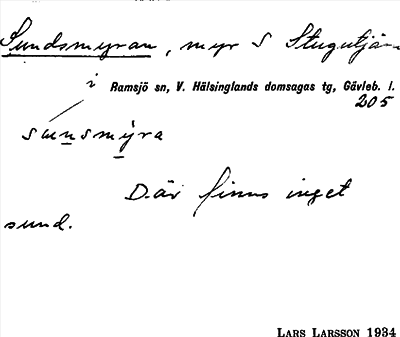 Sundsmyran, myr S Stugutjär
i Ramsjö sn, V. Hälsinglands domsagas tg, Gävleb. l.
205
sunsmýra
Där finns inget
sund.
LARS LARSSON 1934